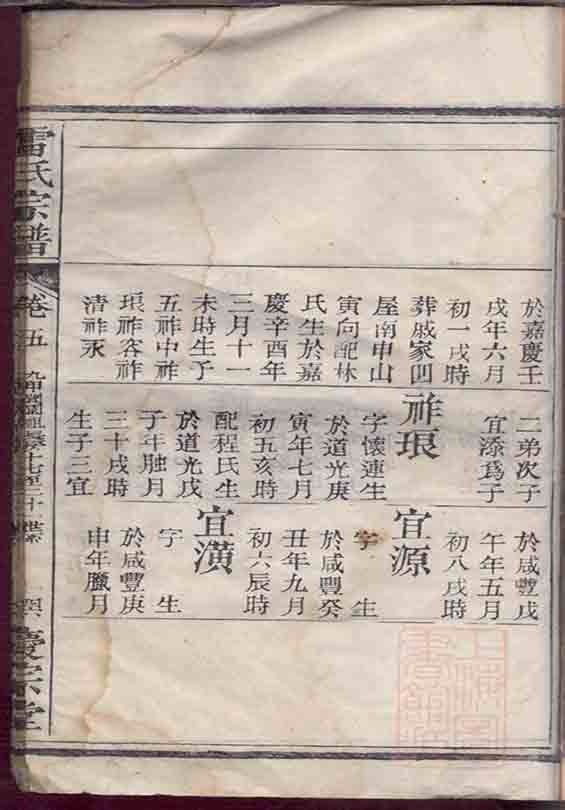 於嘉慶壬
戌年六月
初一戌時
葬戚家凹
屋南申山
寅向配林
氏生於嘉
慶辛酉年
三月十一
未時生子
五祚中祚
琅祚容祚
清祚永
二弟次子
宜添爲子
祚琅
字懷連生
於道光庚
寅年七月
初五亥時
配程氏生
於道光戊
子年臘月
三十戌時
生子三宜
於咸豐戊
午年五月
初八戌時
宜源
字 生
於咸豐癸
丑年九月
初六辰時
宜潢
字 生
於咸豐庚
申年臘月
雷氏宗譜
卷五
慶宗堂
上海圖
書館藏